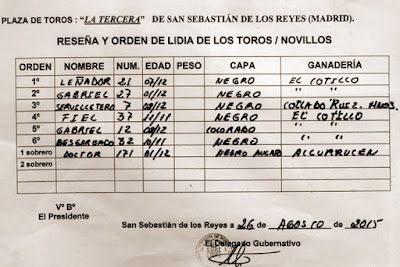 PLAZA DE TOROS : "LA TERCERA" DE SAN SEBASTIÁN DE LOS REYES (MADRID).
RESEÑA Y ORDEN DE LIDIA DE LOS TOROS / NOVILLOS
ORDEN NOMBRE NUM. EDAD PESO CAPA GANADERÍA
1º LEÑADOR 21 07/12 NEGRO EL COTILLO
2º GABRIEL 27 01/12 NEGRO " "
3º SERVILLETERO 7 02/12 NEGRO COLLADO RUIZ. HNOS.
4º FIEL 37 11/11 NEGRO EL COTILLO
5º GABRIEL 12 02/12 COLORADO " "
6º DESGARBADO 32 10/11 NEGRO " "
1 sobrero DOCTOR 171 01/12 NEGRO ALCURRUCÉN
2 sobrero
Vº Bº
El Presidente
San Sebastián de los Reyes a 26 de AGOSTO de 2015
El Delegado Gubernativo